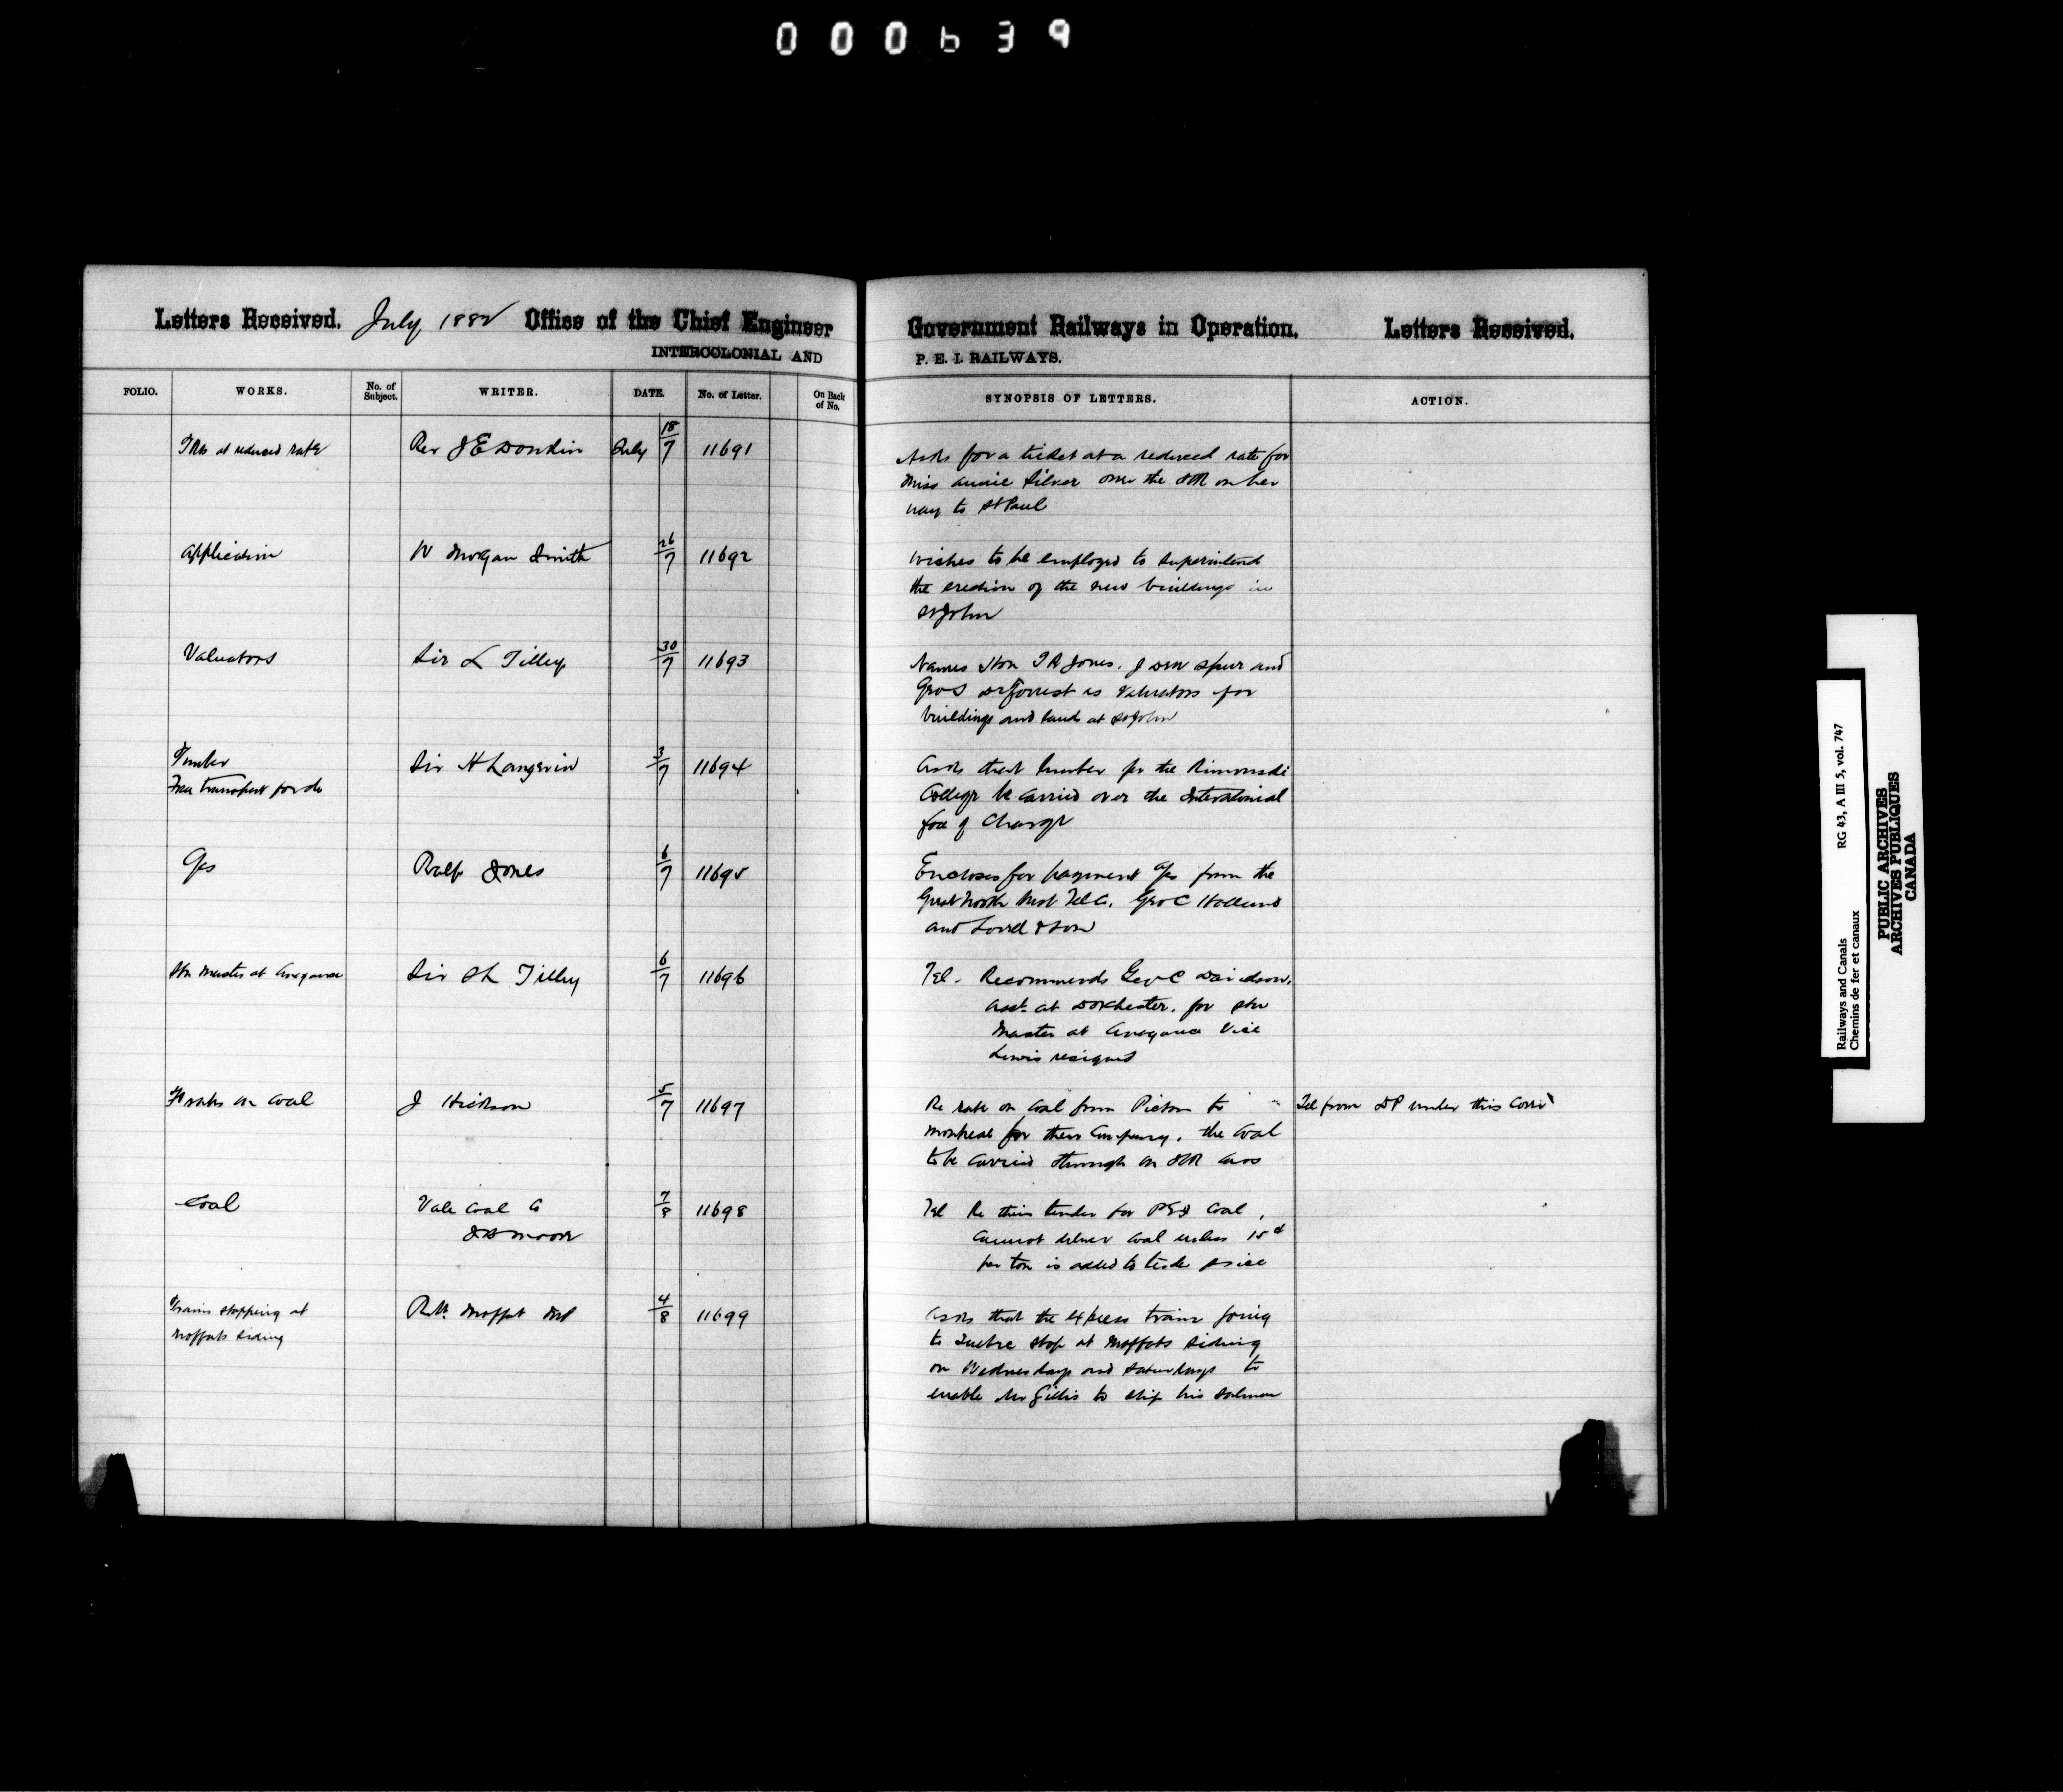 000639
Letters Received. July 1882 Office of the Chief Engineer Government Railways in Operation. Letters Received.
INTERCOLONIAL AND P. E. I. RAILWAYS.
FOLIO. WORKS. No. of Subject. WRITER. DATE. No. of Letter. On Back of No. SYNOPSIS OF LETTERS. ACTION.
Tkts at reduced rate Rev J E Donkin July 18/7 11691 Asks for a ticket at a reduced rate for
Miss Annie Silver over the ICR on her
way to St Paul
Application W Morgan Smith 26/7 11692 Wishes to be employed to superintend
the erection of the new buildings in
St John
Valuators Sir L Tilley 30/7 11693 Names Hon T R Jones, J DeW Spur and
Geo S DeForrest as Valuators for
buildings and lands at St John
Lumber Sir H Langevin 3/7 11694 Asks that lumber for the Rimouski
Free transport for do College be carried over the Intercolonial
free of Charge
Ralf Jones 6/7 11695 Encloses for payment from the
Great North West Tel Co, Geo C Holland
and Lovell & Son
Stn Master at Anagance Sir S L Tilley 6/7 11696 Tel. Recommends Geo C Davidson,
Asst. at Dorchester, for Stn
Master at Anagance Vice
Lewis resigned
Ft rates on Coal J Hickson 5/7 11697 Re rate on Coal from Pictou to Tel from DP under this Corr
Montreal for their Company, the Coal
to be carried through on ICR Cars
Coal Vale Coal Co 7/8 11698 Tel Re their tender for PEI Coal,
J B Moore Cannot deliver Coal unless 15 cts
per ton is added to price
Trains stopping at R. Moffat MP 4/8 11699 Asks that the Express trains going
Moffats Siding to Quebec stop at Moffats Siding
on Wednesdays and Saturdays to
enable Mr Gillis to ship his Salmon
Railways and Canals RG 43, A III 5, vol. 747
Chemins de fer et canaux
PUBLIC ARCHIVES
ARCHIVES PUBLIQUES
CANADA